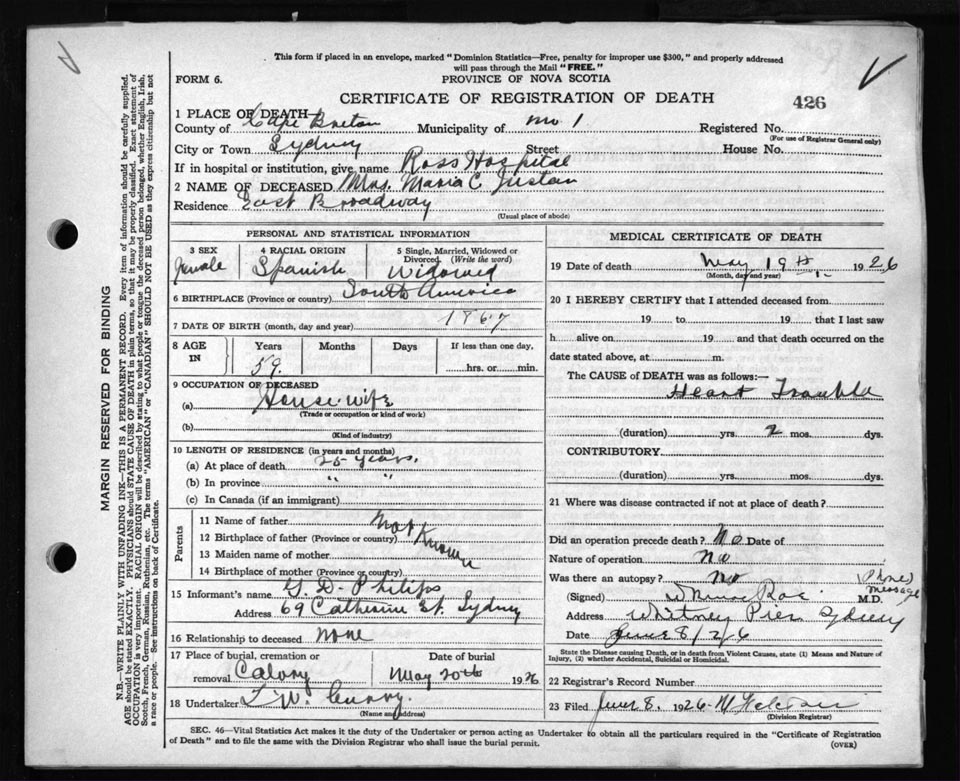 This form if placed in an envelope, marked "Dominion Statistics—Free, penalty for improper use $300," and properly addressed
will pass through the Mail "FREE."
FORM 6.
PROVINCE OF NOVA SCOTIA
CERTIFICATE OF REGISTRATION OF DEATH
426
1 PLACE OF DEATH—
County of Cape Breton Municipality of No 1 Registered No.
(For use of Registrar General only)
City or Town Sydney Street House No.
If in hospital or institution, give name Ross Hospital
2 NAME OF DECEASED Mrs. Maria C. Justan
Residence East Broadway
(Usual place of abode)
PERSONAL AND STATISTICAL INFORMATION
3 SEX 4 RACIAL ORIGIN 5 Single, Married, Widowed or
Divorced (Write the word)
Female Spanish Widowed
6 BIRTHPLACE (Province or country) South America
7 DATE OF BIRTH (month, day and year) 1867
8 AGE IN Years Months Days If less than one day,
59. hrs. or min.
9 OCCUPATION OF DECEASED
(a) House wife
(Trade or occupation or kind of work)
(b)
(Kind of industry)
10 LENGTH OF RESIDENCE (in years and months)
(a) At place of death 25 years.
(b) In province " "
(c) In Canada (if an immigrant)
Parents
11 Name of father Not
12 Birthplace of father (Province or country) Known
13 Maiden name of mother
14 Birthplace of mother (Province or country)
15 Informant's name G. D. Philips
Address 69 Catherine St. Sydney
16 Relationship to deceased none
17 Place of burial, cremation or Date of burial
removal Calvry May 20th 1926
18 Undertaker T. W. Curry.
(Name and address)
MEDICAL CERTIFICATE OF DEATH
19 Date of death May 19th 1926
(Month, day and year)
20 I HEREBY CERTIFY that I attended deceased from
19 to 19 that I last saw
h alive on 19 and that death occurred on the
date stated above, at m.
The CAUSE of DEATH was as follows:—
Heart Trouble
(duration) yrs. 2 mos. dys.
CONTRIBUTORY
(duration) yrs. mos. dys.
21 Where was disease contracted if not at place of death?
Did an operation precede death? No Date of
Nature of operation No
Was there an autopsy? No (Phone
message)
(Signed) M.D.
Address Whitney Pier Sydney
Date June 8/26
State the Disease causing Death, or in death from Violent Causes, state (1) Means and Nature of
Injury, (2) whether Accidental, Suicidal or Homicidal.
22 Registrar's Record Number
23 Filed June 8, 1926
(Division Registrar)
SEC. 46—Vital Statistics Act makes it the duty of the Undertaker or person acting as Undertaker to obtain all the particulars required in the "Certificate of Registration
of Death" and to file the same with the Division Registrar who shall issue the burial permit.
(OVER)
MARGIN RESERVED FOR BINDING
N.B.—WRITE PLAINLY WITH UNFADING INK—THIS IS A PERMANENT RECORD. Every item of information should be carefully supplied.
AGE should be stated EXACTLY. PHYSICIANS should STATE CAUSE OF DEATH in plain terms, so that it may be properly classified. Exact statement of
OCCUPATION is very important. RACIAL ORIGIN will be described by stating to what people or tongue the deceased person belonged, whether English, Irish,
Scotch, French, German, Russian, Ruthenian, etc. The terms "AMERICAN" or "CANADIAN" SHOULD NOT BE USED as they express citizenship but not
a race or people. See instructions on back of Certificate.